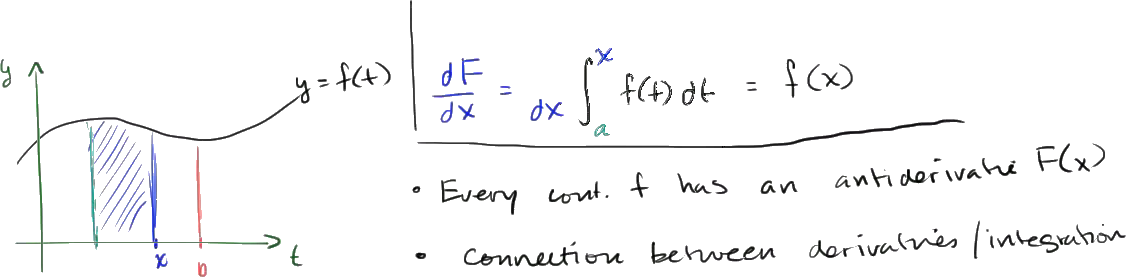 y
y = f(t)
x
b
t
dF/dx = /dx ∫_a^x f(t) dt = f(x)
• Every cont. f has an antiderivative F(x)
• Connection between derivatives/integration